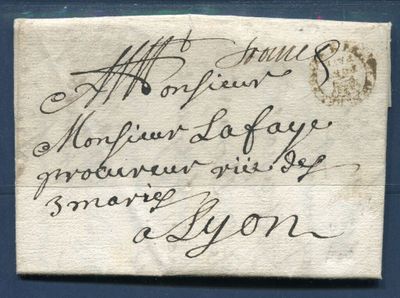 franc
A Monsieur
Monsieur Lafaye
procureur rüe des
3 maries
a Lyon